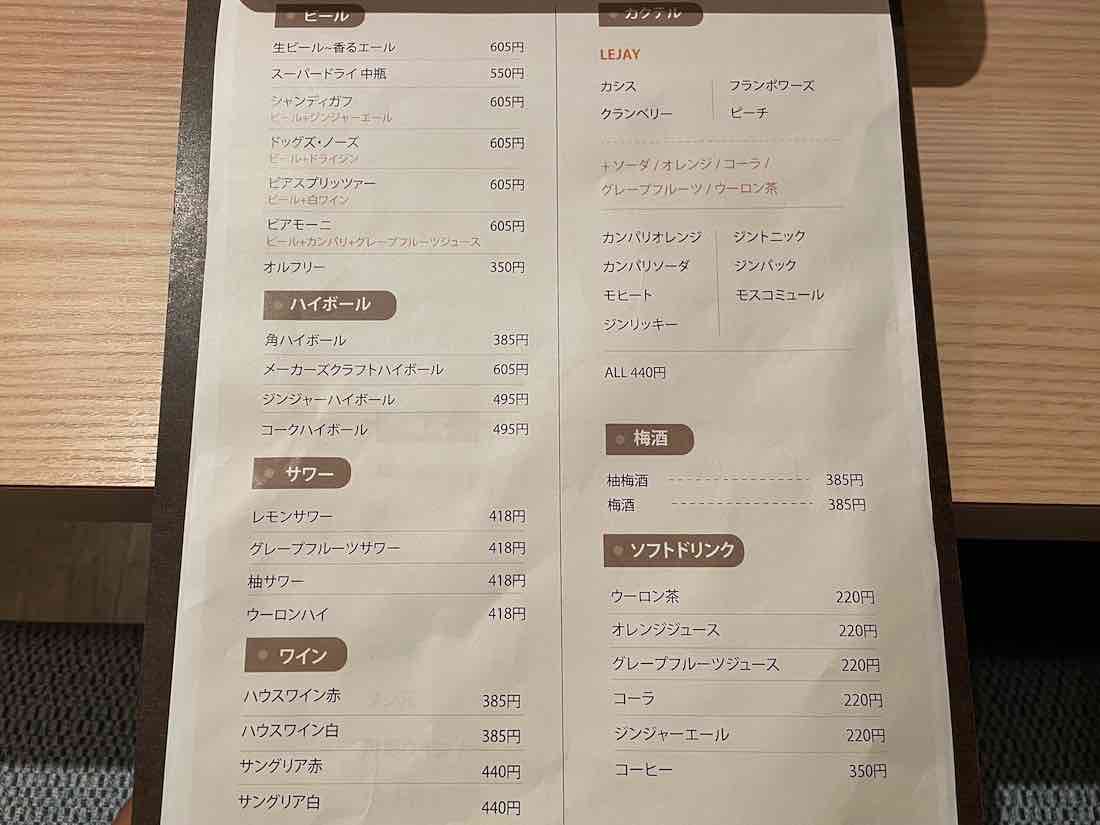 ビール
生ビール~香るエール 605円
スーパードライ 中瓶 550円
シャンディガフ 605円
ビール+ジンジャーエール
ドッグズ・ノーズ 605円
ビール+ドライジン
ビアスプリッツァー 605円
ビール+白ワイン
ビアモーニ 605円
ビール+カンパリ+グレープフルーツジュース
オルフリー 350円
ハイボール
角ハイボール 385円
メーカーズクラフトハイボール 605円
ジンジャーハイボール 495円
コークハイボール 495円
サワー
レモンサワー 418円
グレープフルーツサワー 418円
柚サワー 418円
ウーロンハイ 418円
ワイン
ハウスワイン赤 385円
ハウスワイン白 385円
サングリア赤 440円
サングリア白 440円
カクテル
LEJAY
カシス フランポワーズ
クランベリー ピーチ
+ソーダ / オレンジ / コーラ /
グレープフルーツ / ウーロン茶
カンパリオレンジ ジントニック
カンパリソーダ ジンバック
モヒート モスコミュール
ジンリッキー
ALL 440円
梅酒
柚梅酒 385円
梅酒 385円
ソフトドリンク
ウーロン茶 220円
オレンジジュース 220円
グレープフルーツジュース 220円
コーラ 220円
ジンジャーエール 220円
コーヒー 350円